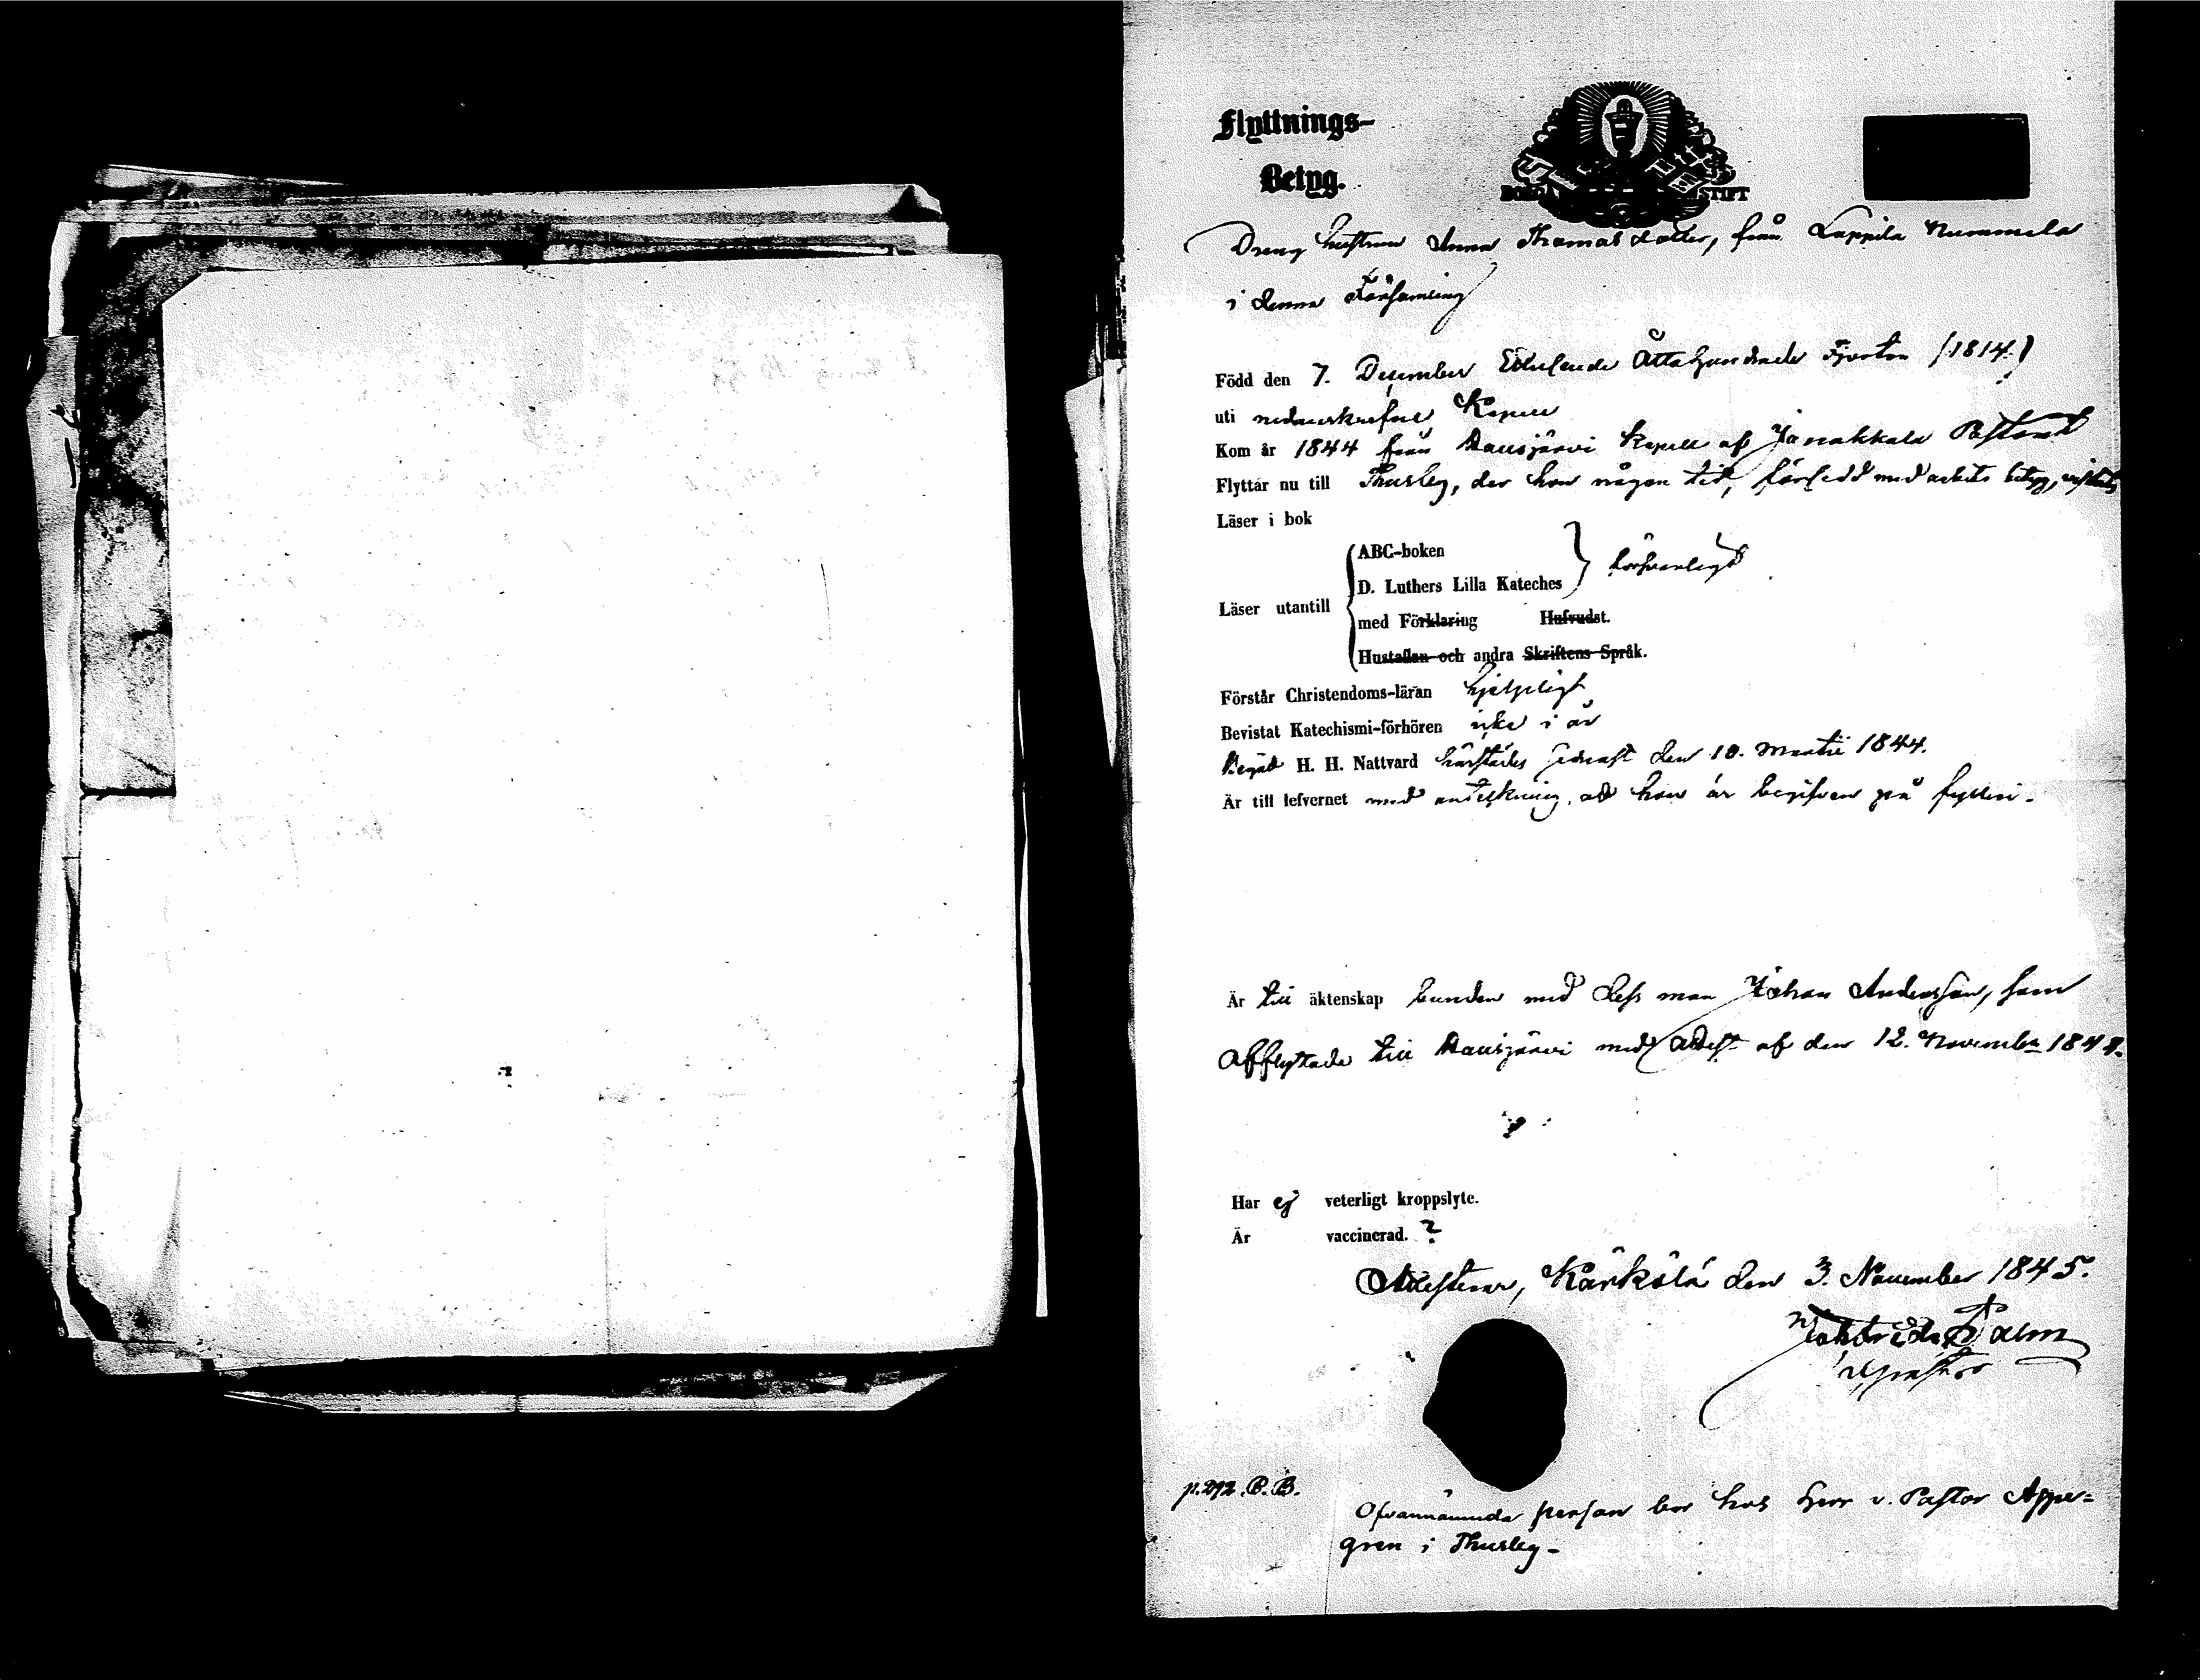 Flyttnings-
Betyg.
BORGÅ STIFT
Dreng hustrun Anna Thomasdotter, från Lappila Nummela
i denna Församling
Född den 7. December Ettusende Åttahundrade Fjorton (1814.)
uti nedanskrefne Kapell
Kom år 1844 från Hausjärvi Kapell af Janakkala Pastorat
Flyttar nu till Thusby, der hon någon tid, försedd med arbets betyg, vistats
Läser i bok
ABC-boken
D. Luthers Lilla Kateches
försvarligt
Läser utantill
med Förklaring Hufvudst.
Hustaflan och andra Skriftens Språk.
Förstår Christendoms-läran hjelpligt
Bevistat Katechismi-förhören icke i år
Begått H. H. Nattvard härstädes sednast den 10. Martii 1844.
Är till lefvernet med anteckning, att hon är begifven på fylleri.
Är till äktenskap bunden med dess man Johan Andersson, som
afflyttade till Hausjärvi med attest af den 12. November 1844.
Har ej veterligt kroppslyte.
Är vaccinerad. ?
Attesterar, Kärkölä den 3. November 1845.
p. 292. C. B.
Ofvannämnda person bor hos Herr v. Pastor Apper-
gren i Thusby-